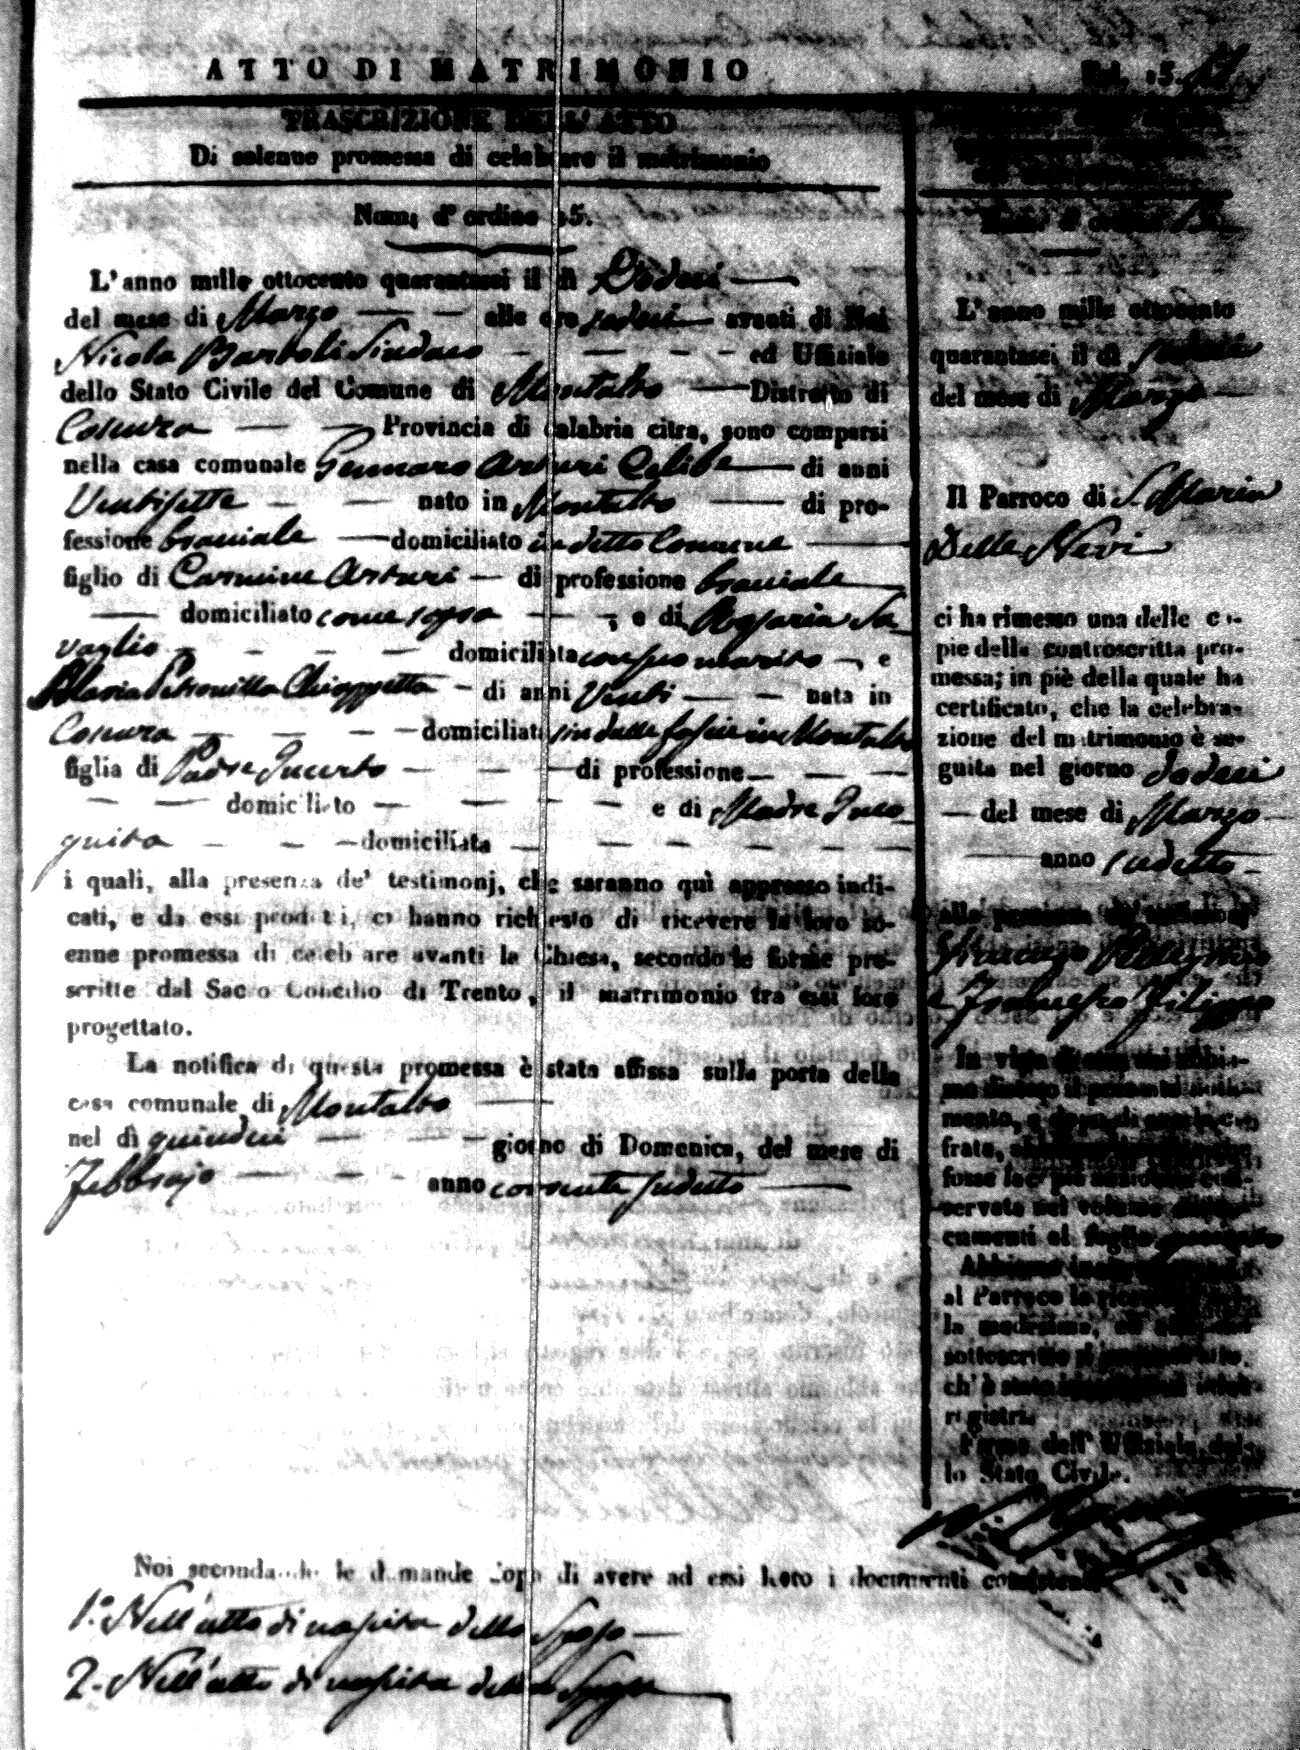 ATTO DI MATRIMONIO
Fol. 15.
TRASCRIZIONE DELL'ATTO
Di solenne promessa di celebrare il matrimonio
Num. d'ordine 15.
L'anno mille ottocento quarantasei il dì Dodeci
del mese di Marzo alle ore sedeci avanti di Noi
Nicola Bartoli Sindaco ed Uffiziale
dello Stato Civile del Comune di Montalto Distretto di
Cosenza Provincia di calabria citra, sono comparsi
nella casa comunale Gennaro Arturi Celibe di anni
Ventisette nato in Montalto di pro-
fessione bracciale domiciliato in detto Comune
figlio di Carmine Arturi di professione bracciale
domiciliato come sopra, e di Rosaria Sa-
vaglio domiciliata con suo marito, e
Maria Petronilla Chiappetta di anni Venti nata in
Cosenza domiciliata sin dalle fascie in Montalto
figlia di Padre Incerto di professione
domiciliato e di Madre Inco-
gnita domiciliata
i quali, alla presenza de' testimonj, che saranno quì appresso indi-
cati, e da essi prodotti, ci hanno richiesto di ricevere la loro so-
enne promessa di celebrare avanti la Chiesa, secondo le forme pre-
scritte dal Sacro Concilio di Trento, il matrimonio tra essi loro
progettato.
La notifica di questa promessa è stata affissa sulla porta della
casa comunale di Montalto
nel dì quindeci giorno di Domenica, del mese di
Febbrajo anno corrente sudetto
Noi secondando le dimande dopo di avere ad essi letto i documenti consistenti
1.° Nell'atto di nascita dello Sposo
2. Nell'atto di nascita della Sposa
Num. d'ordine 15.
L'anno mille ottocento
quarantasei il dì
del mese di Marzo
Il Parroco di S. Maria
Delle Nevi
ci ha rimesso una delle co-
pie della controscritta pro-
messa; in piè della quale ha
certificato, che la celebra-
zione del matrimonio è se-
guita nel giorno dodeci
del mese di Marzo
anno sudetto
alla presenza de' testimonj
Vincenzo Pellegrino
e Francesco Filippo
In vista di essa noi abbia-
mo disteso il presente notia-
mento, e dopo di averla ci-
frata, abbiamo disposto che
fosse la copia anzidetta con-
servata nel volume de' do-
cumenti al foglio
Abbiamo inoltre
al Parroco la ricevuta del-
la medesima, ed abbiamo
sottoscritto il presente atto,
ch'è stato
registri.
Firma dell'Uffiziale del-
lo Stato Civile.